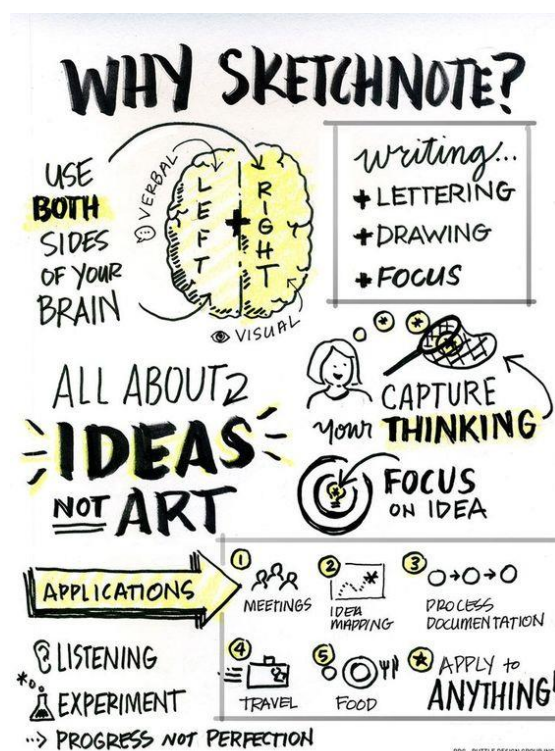 WHY SKETCHNOTE?
USE
BOTH
SIDES
OF YOUR
BRAIN
VERBAL
LEFT
+
RIGHT
VISUAL
writing...
+ LETTERING
+ DRAWING
+ FOCUS
ALL ABOUT
IDEAS
NOT ART
CAPTURE
your THINKING
FOCUS
ON IDEA
APPLICATIONS
1
MEETINGS
2
IDEA
MAPPING
3
PROCESS
DOCUMENTATION
4
TRAVEL
5
FOOD
* APPLY to
ANYTHING!
LISTENING
EXPERIMENT
PROGRESS NOT PERFECTION